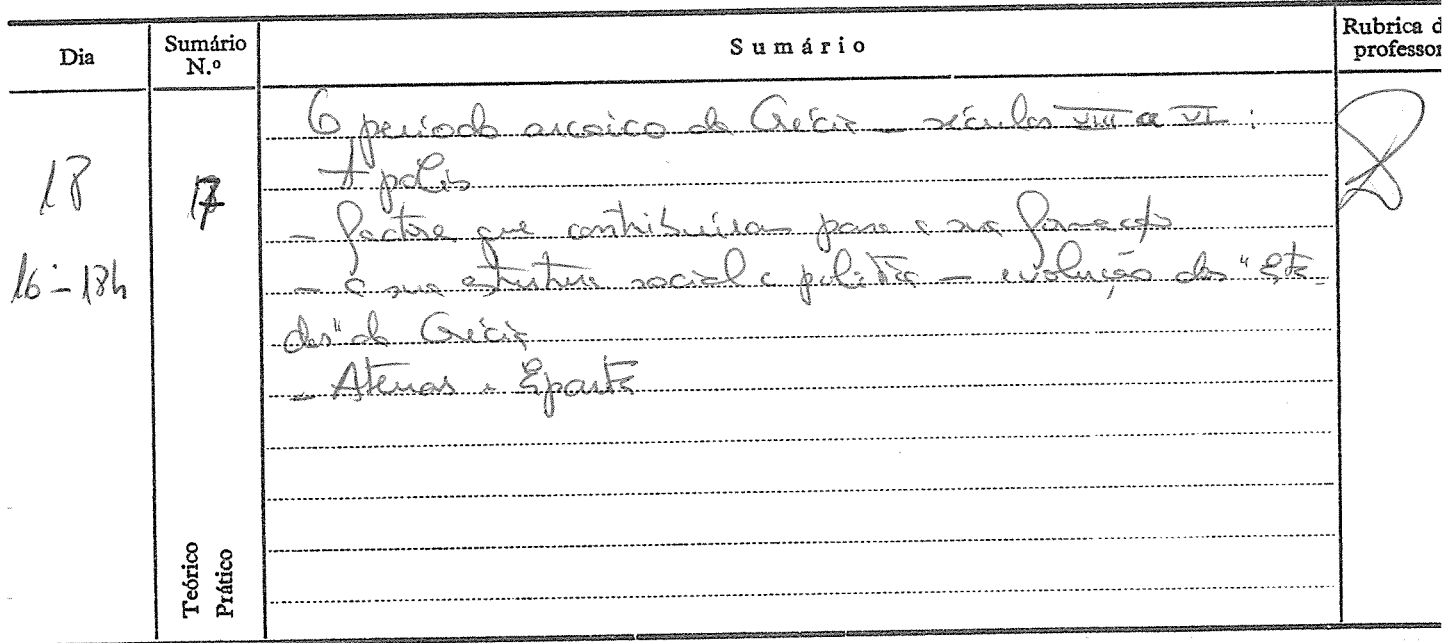 Dia
Sumário N.º
Sumário
Rubrica d
professor
18
16-18h
17
O período arcaico da Grécia - séculos VIII a VI:
A polis
- factores que contribuíram para a sua formação
- a sua estrutura social e política - evolução dos "Esta-
dos" da Grécia
- Atenas e Esparta
Teórico
Prático